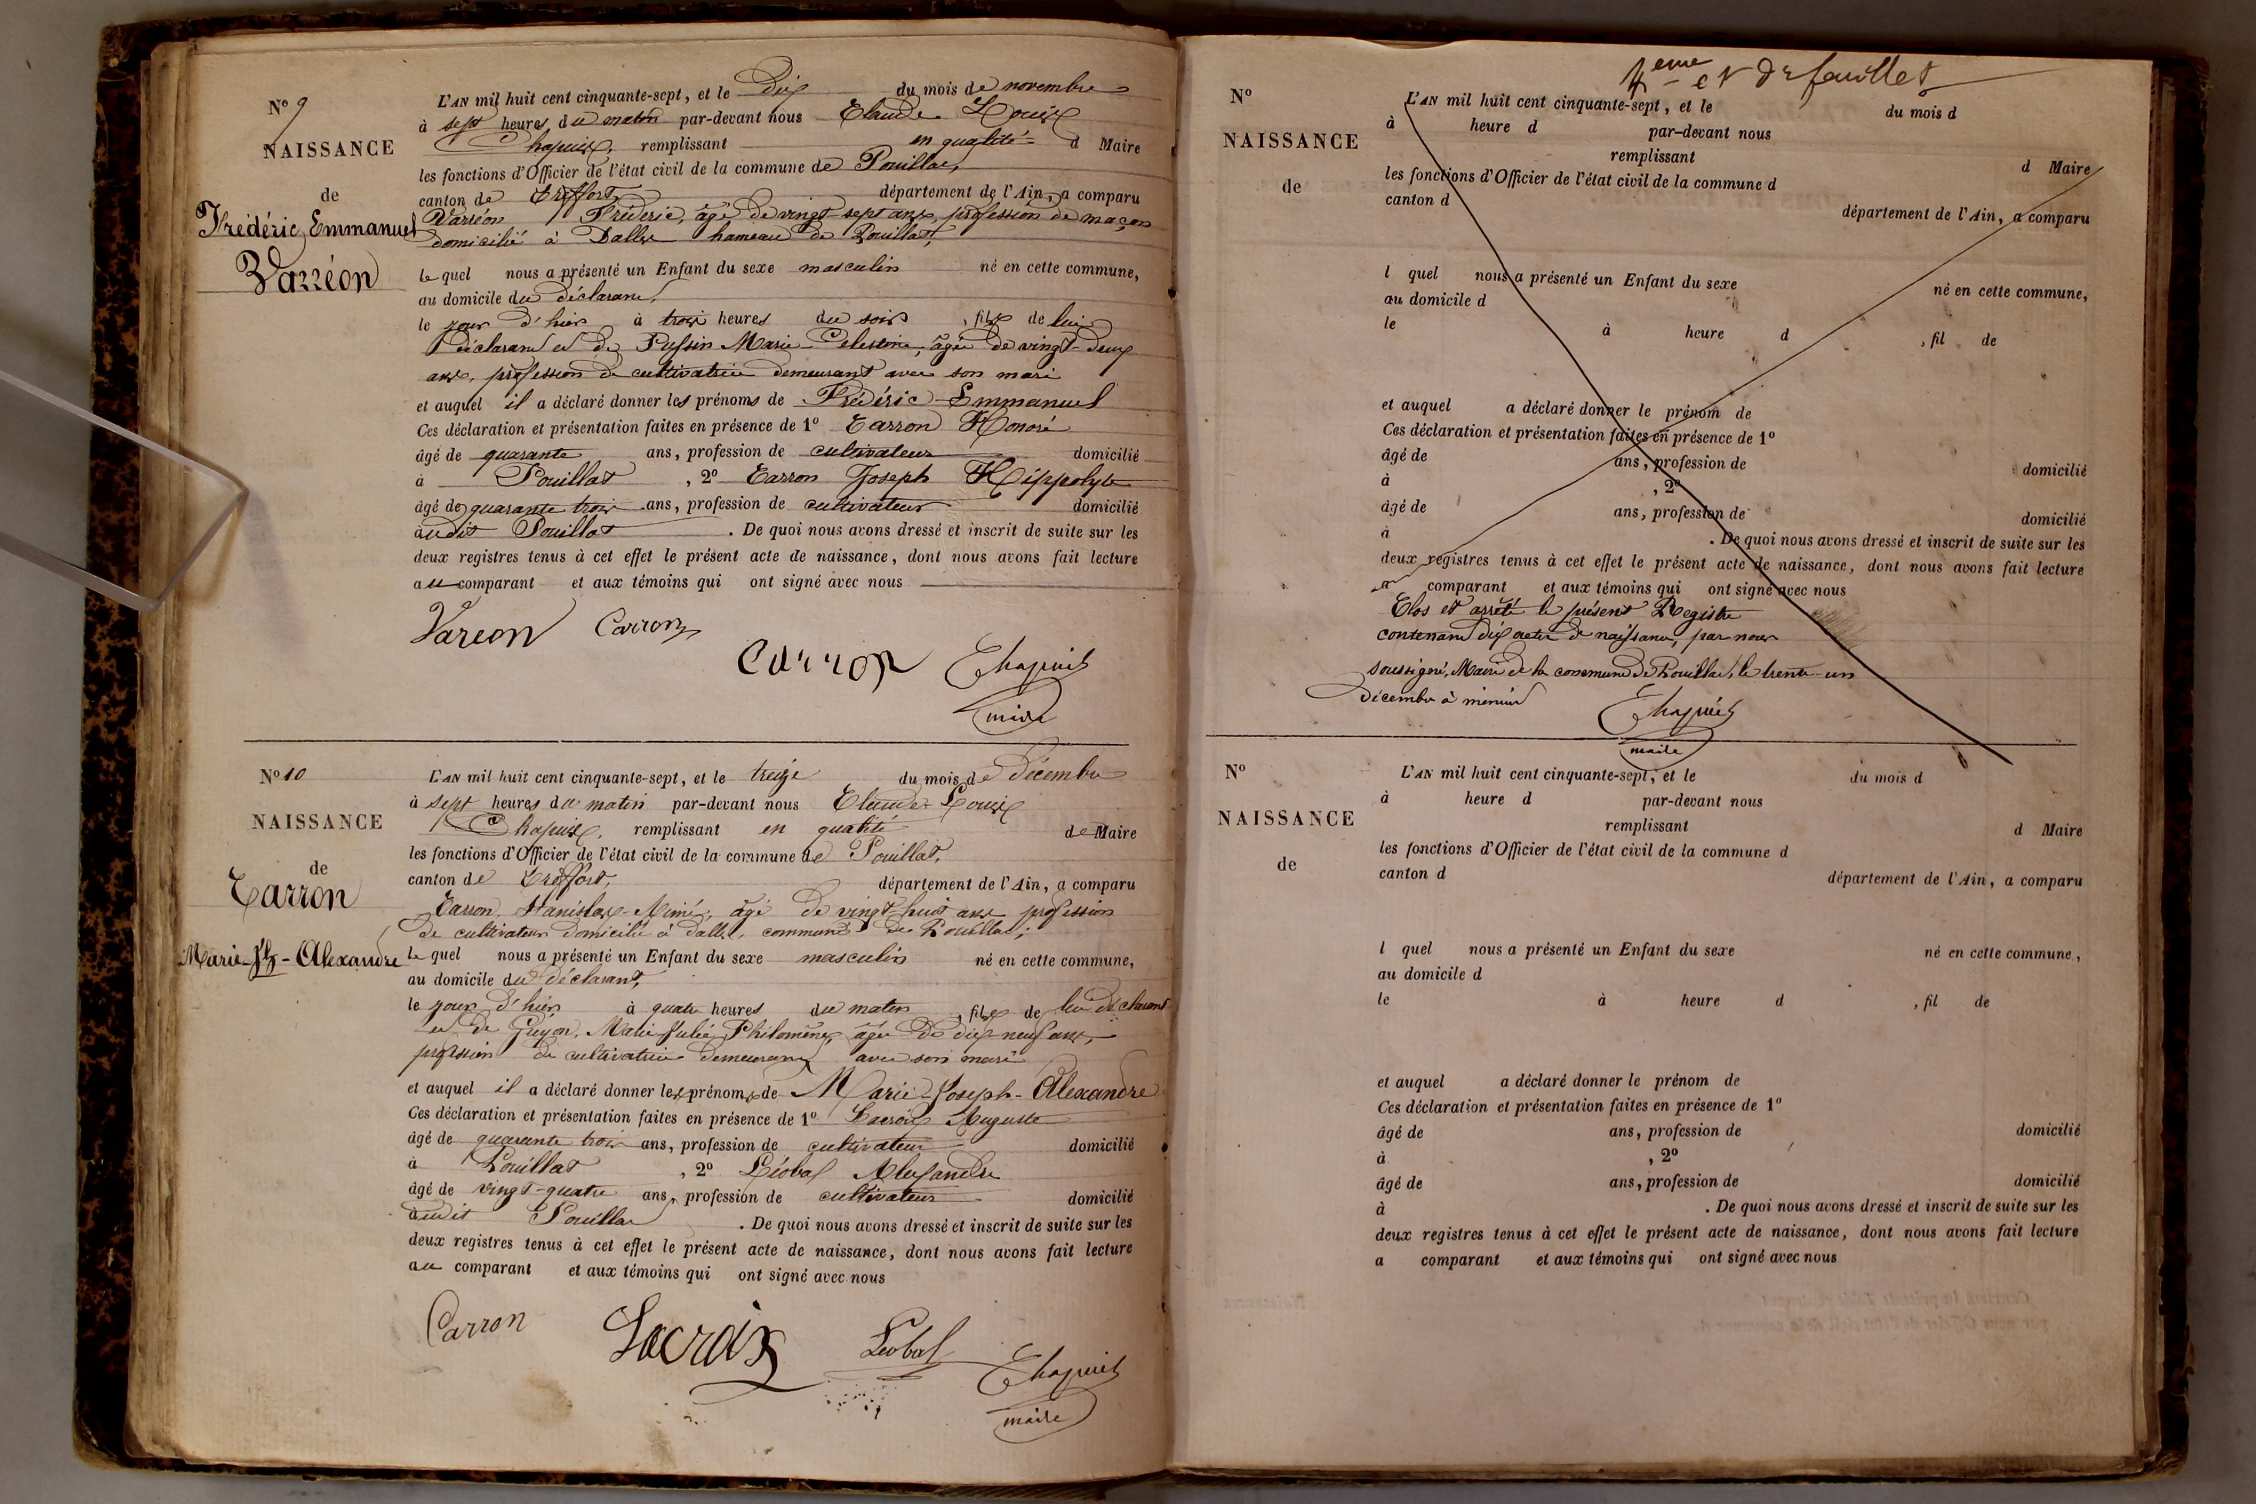 N° 9
NAISSANCE
de
Frédéric Emmanuel
Varréon
L'AN mil huit cent cinquante-sept, et le Dix du mois de novembre
à sept heures du matin par-devant nous Claude Louis
Chapuis, remplissant en qualité d Maire
les fonctions d'Officier de l'état civil de la commune de Pouillat,
canton de Treffort, département de l'Ain, a comparu
Varréon Fréderic, âgé de vingt-sept ans, profession de maçon
domicilié à Dalles hameau de Pouillat,
lequel nous a présenté un Enfant du sexe masculin né en cette commune,
au domicile du déclarant,
le jour d'hier à trois heures du soir, fils de lui
déclarant et de Pussin Marie Celestine, âgée de vingt-deux
ans, profession de cultivatrice demeurant avec son mari
et auquel il a déclaré donner les prénoms de Frédéric-Emmanuel
Ces déclaration et présentation faites en présence de 1° Carron Honoré
âgé de quarante ans, profession de cultivateur domicilié
à Pouillat, 2° Carron Joseph Hippolyte
âgé de quarante trois ans, profession de cultivateur domicilié
audit Pouillat. De quoi nous avons dressé et inscrit de suite sur les
deux registres tenus à cet effet le présent acte de naissance, dont nous avons fait lecture
au comparant et aux témoins qui ont signé avec nous
Vareon Carron
Carron Chapuis
maire
N° 10
NAISSANCE
de
Carron
Marie-Jh-Alexandre
L'AN mil huit cent cinquante-sept, et le treize du mois de décembre
à sept heures du matin par-devant nous Claude-Louis
Chapuis, remplissant en qualité de Maire
les fonctions d'Officier de l'état civil de la commune de Pouillat,
canton de Treffort, département de l'Ain, a comparu
Carron, Stanislas-Mimé, âgé de vingt-huit ans profession
de cultivateur domicilié à Dalles, commune de Pouillat;
lequel nous a présenté un Enfant du sexe masculin né en cette commune,
au domicile du déclarant,
le jour d'hier à quatre heures du matin, fils de lui déclarant
et de Guyon, Marie-Julie-Philomène, âgée de dix-neuf ans,
profession de cultivatrice demeurant avec son mari
et auquel il a déclaré donner les prénoms de Marie-Joseph-Alexandre
Ces déclaration et présentation faites en présence de 1° Lacroix Auguste
âgé de quarante trois ans, profession de cultivateur domicilié
à Pouillat, 2° Léobal Alexandre
âgé de vingt-quatre ans, profession de cultivateur domicilié
audit Pouillat. De quoi nous avons dressé et inscrit de suite sur les
deux registres tenus à cet effet le présent acte de naissance, dont nous avons fait lecture
au comparant et aux témoins qui ont signé avec nous
Carron Lacroix Léobal Chapuis
maire
4eme et dr feuillet
N°
NAISSANCE
de
L'AN mil huit cent cinquante-sept, et le du mois d
à heure d par-devant nous
remplissant d Maire
les fonctions d'Officier de l'état civil de la commune d
canton d département de l'Ain, a comparu
l quel nous a présenté un Enfant du sexe né en cette commune,
au domicile d
le à heure d , fil de
et auquel a déclaré donner le prénom de
Ces déclaration et présentation faites en présence de 1°
âgé de ans, profession de domicilié
à , 2°
âgé de ans, profession de domicilié
à . De quoi nous avons dressé et inscrit de suite sur les
deux registres tenus à cet effet le présent acte de naissance, dont nous avons fait lecture
a comparant et aux témoins qui ont signé avec nous
Clos et arrêté le présent Registre
contenant dix actes de naissance, par nous
soussigné, Maire de la commune de Pouillat, le trente-un
décembre à minuit
Chapuis
maire
N°
NAISSANCE
de
L'AN mil huit cent cinquante-sept, et le du mois d
à heure d par-devant nous
remplissant d Maire
les fonctions d'Officier de l'état civil de la commune d
canton d département de l'Ain, a comparu
l quel nous a présenté un Enfant du sexe né en cette commune,
au domicile d
le à heure d , fil de
et auquel a déclaré donner le prénom de
Ces déclaration et présentation faites en présence de 1°
âgé de ans, profession de domicilié
à , 2°
âgé de ans, profession de domicilié
à . De quoi nous avons dressé et inscrit de suite sur les
deux registres tenus à cet effet le présent acte de naissance, dont nous avons fait lecture
a comparant et aux témoins qui ont signé avec nous